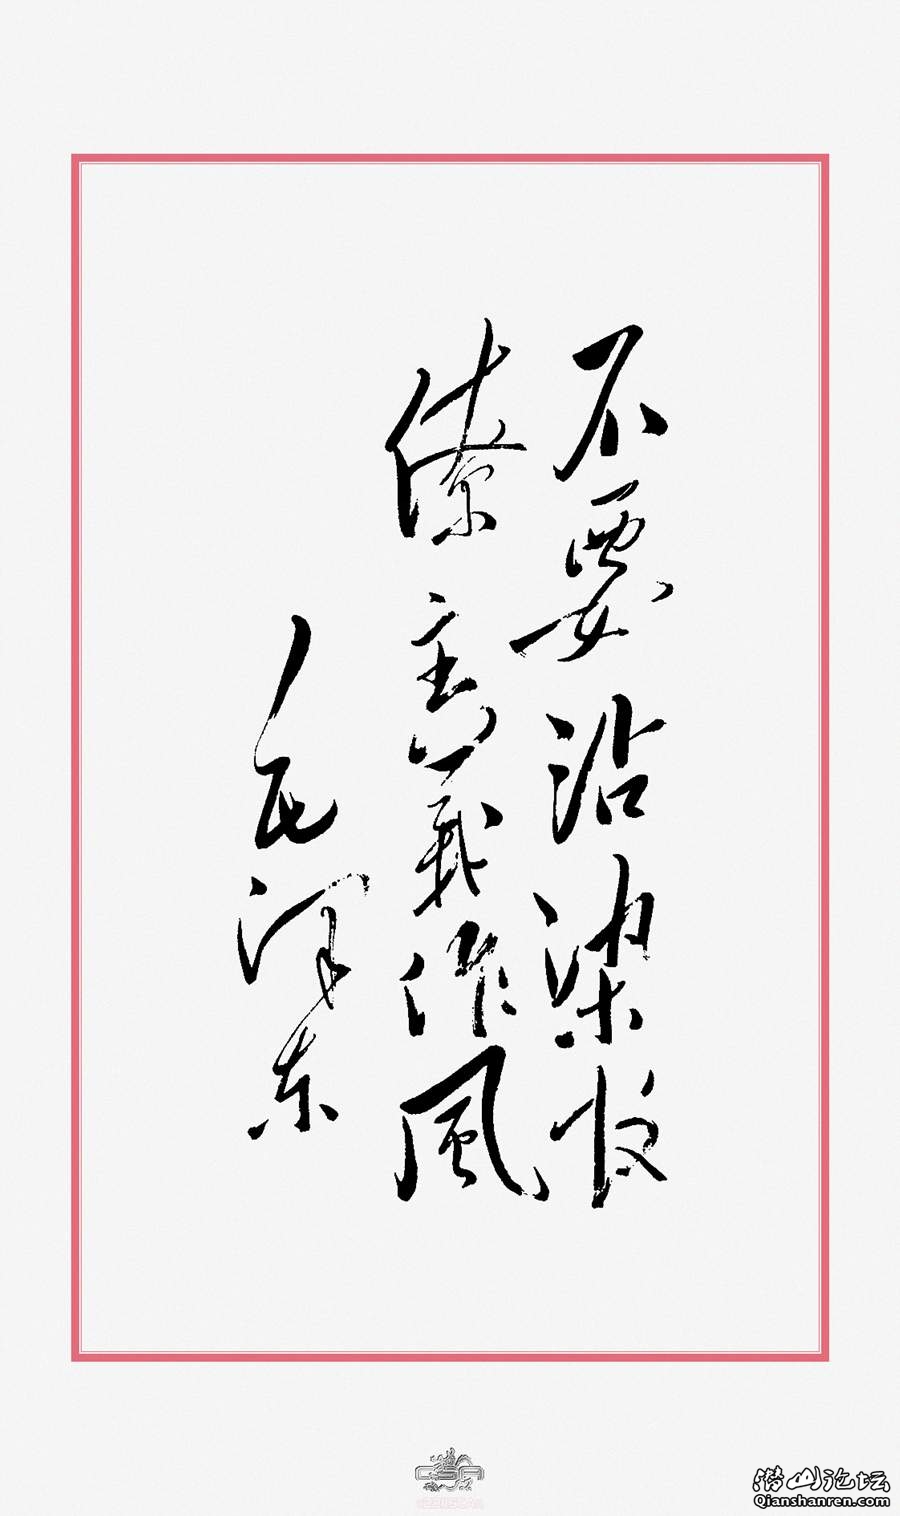 不要沾染
僚主義作風
毛泽东
CSA
潜山论坛
Qianshanren.com